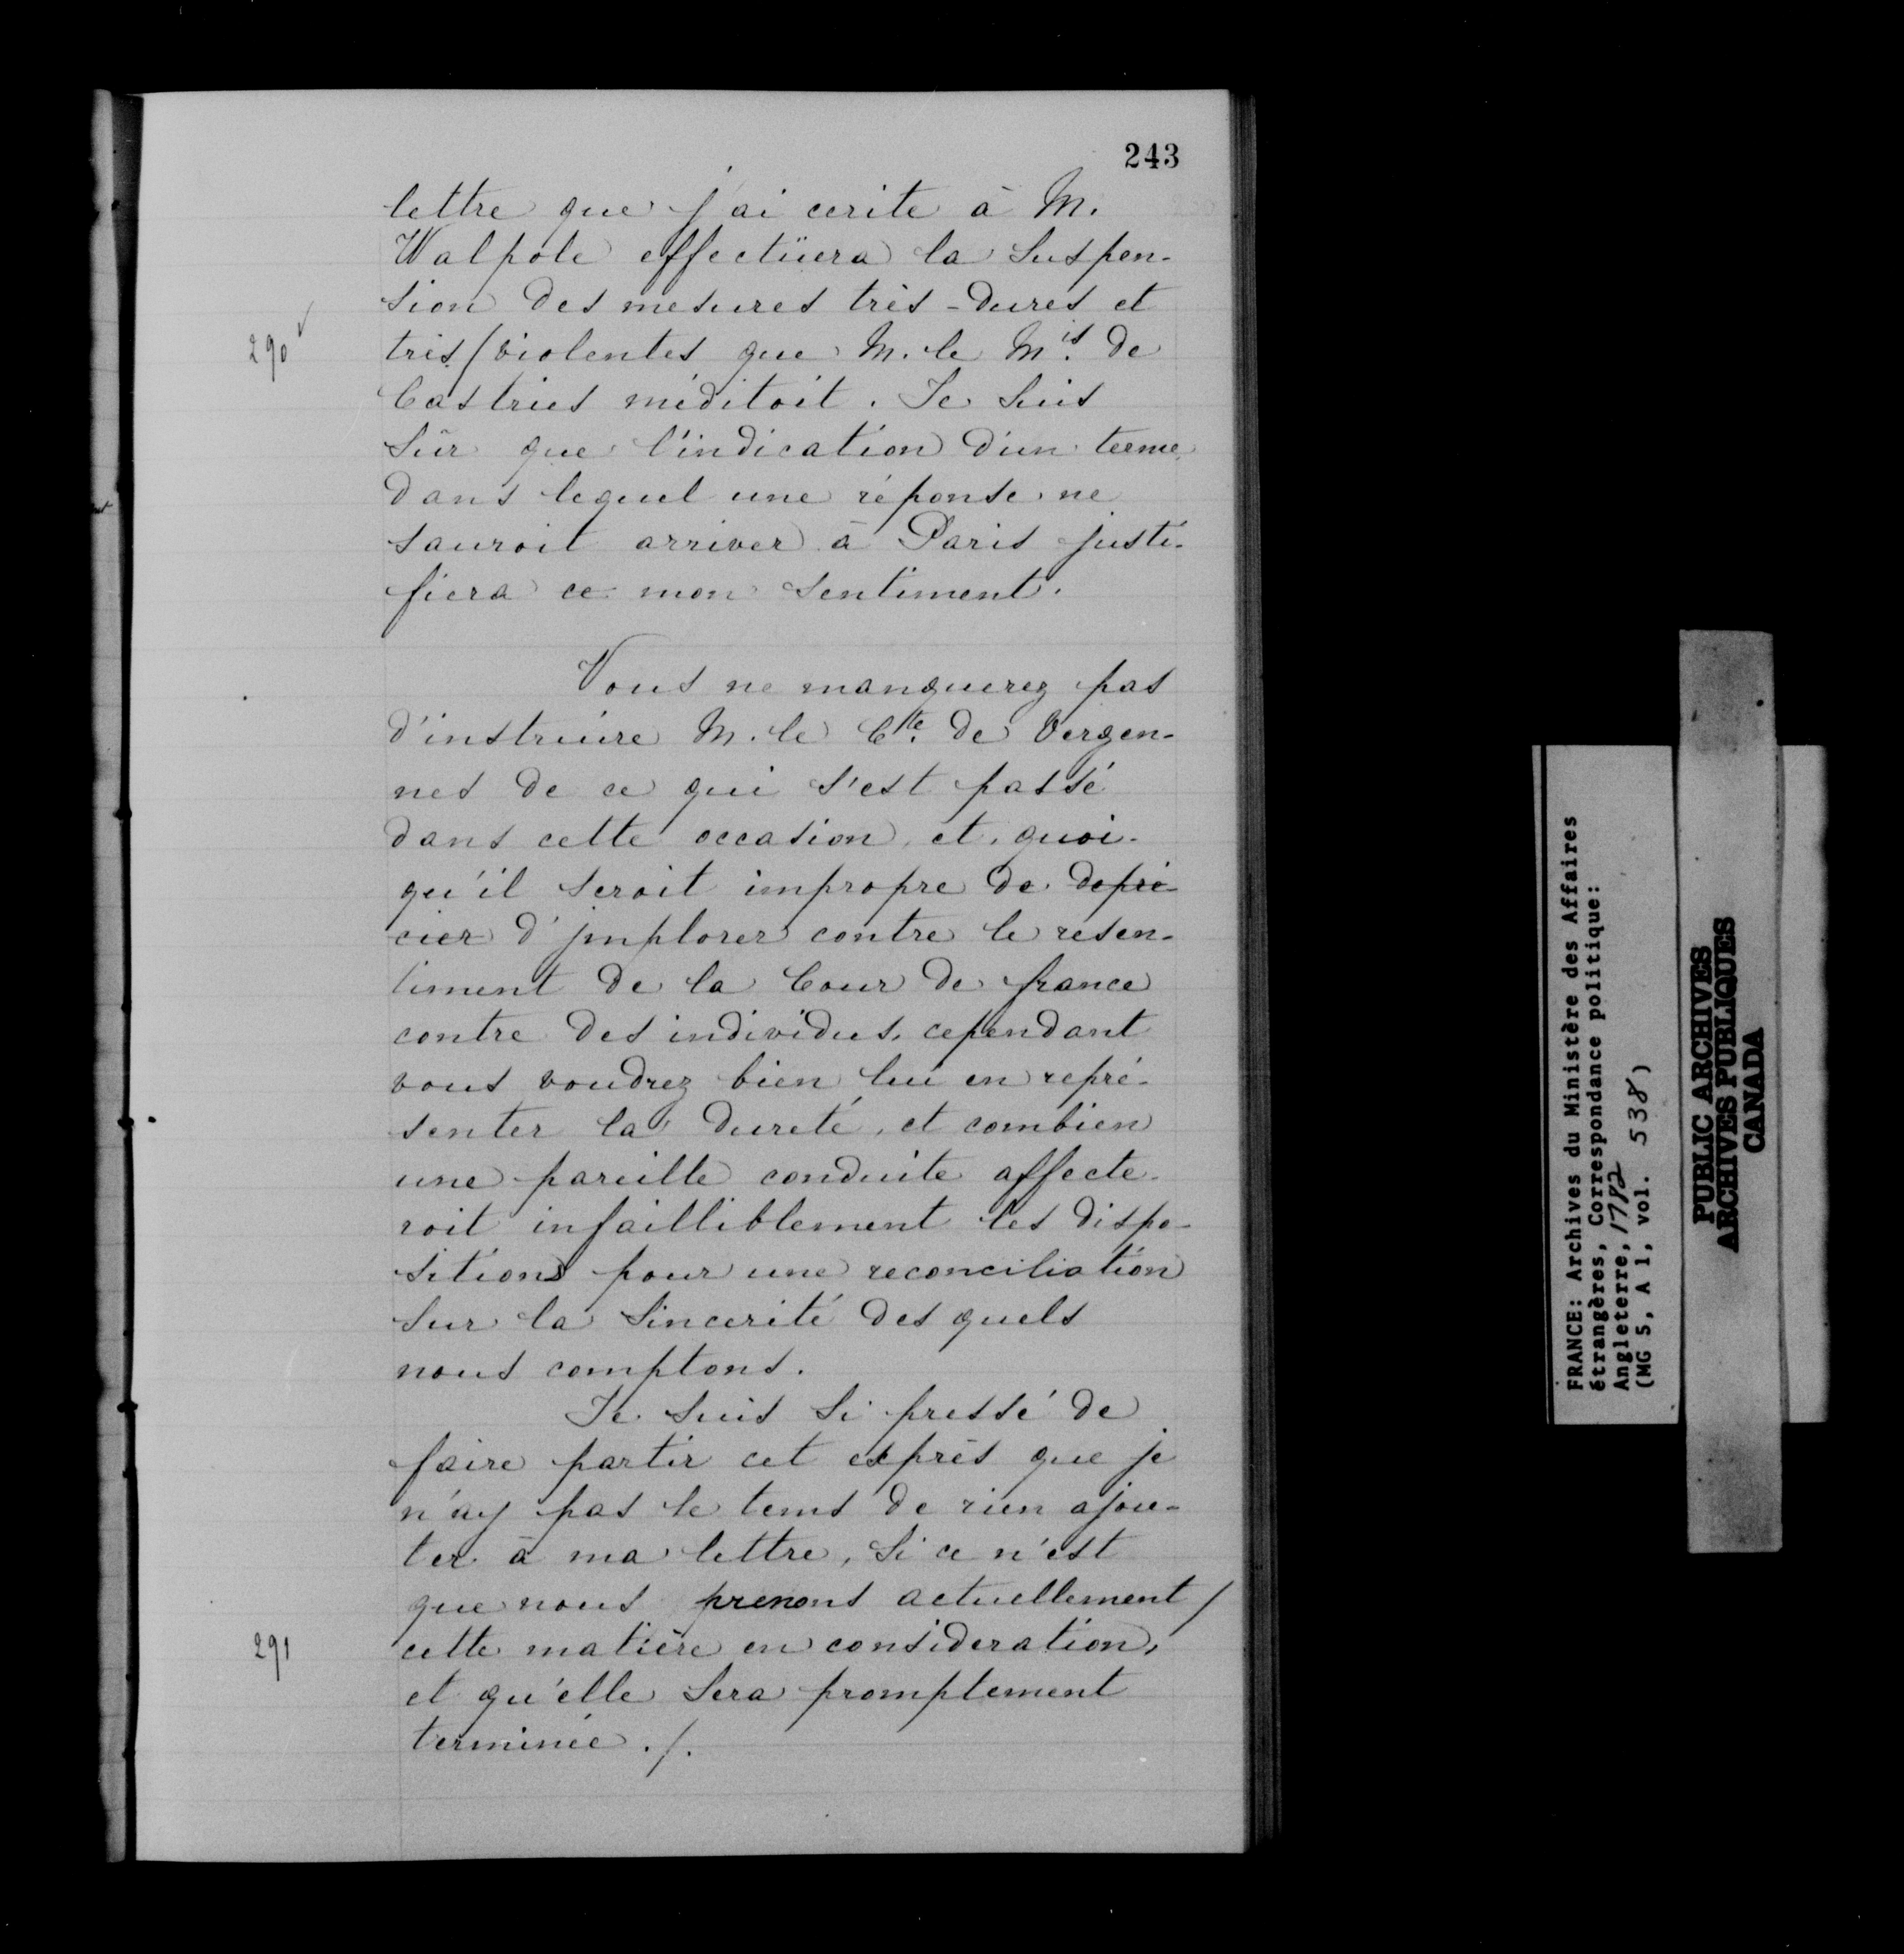 243
lettre que j'ai ecrite à M.
Walpole effectüera la suspen-
sion des mesures très-dures et
290 très/violentes que M. le M.is de
Castries méditoit. Je suis
sûr que l'indication d'un terme
dans lequel une réponse ne
sauroit arriver à Paris justi-
fiera ce mon sentiment.
Vous ne manquerez pas
d'instruire M. le C.te de Vergen-
nes de ce qui s'est passé
dans cette occasion, et quoi-
qu'il seroit impropre de depré-
cier d'jmplorer contre le resen-
timent de la Cour de france
contre des individus, cependant
vous voudrez bien lui en repré-
senter la dureté, et combien
une pareille conduite affecte-
roit infailliblement les dispo-
sitions pour une reconciliation
sur la sincerité des quels
nous comptons.
Je suis si pressé de
faire partir cet exprès que je
n'ay pas le tems de rien ajou-
ter à ma lettre, si ce n'est
que nous prenons actuellement /
291 cette matière en consideration,
et qu'elle sera promptement
terminée ./.
FRANCE: Archives du Ministère des Affaires
étrangères, Correspondance politique:
Angleterre, 1782
(MG 5, A 1, vol. 538)
PUBLIC ARCHIVES
ARCHIVES PUBLIQUES
CANADA